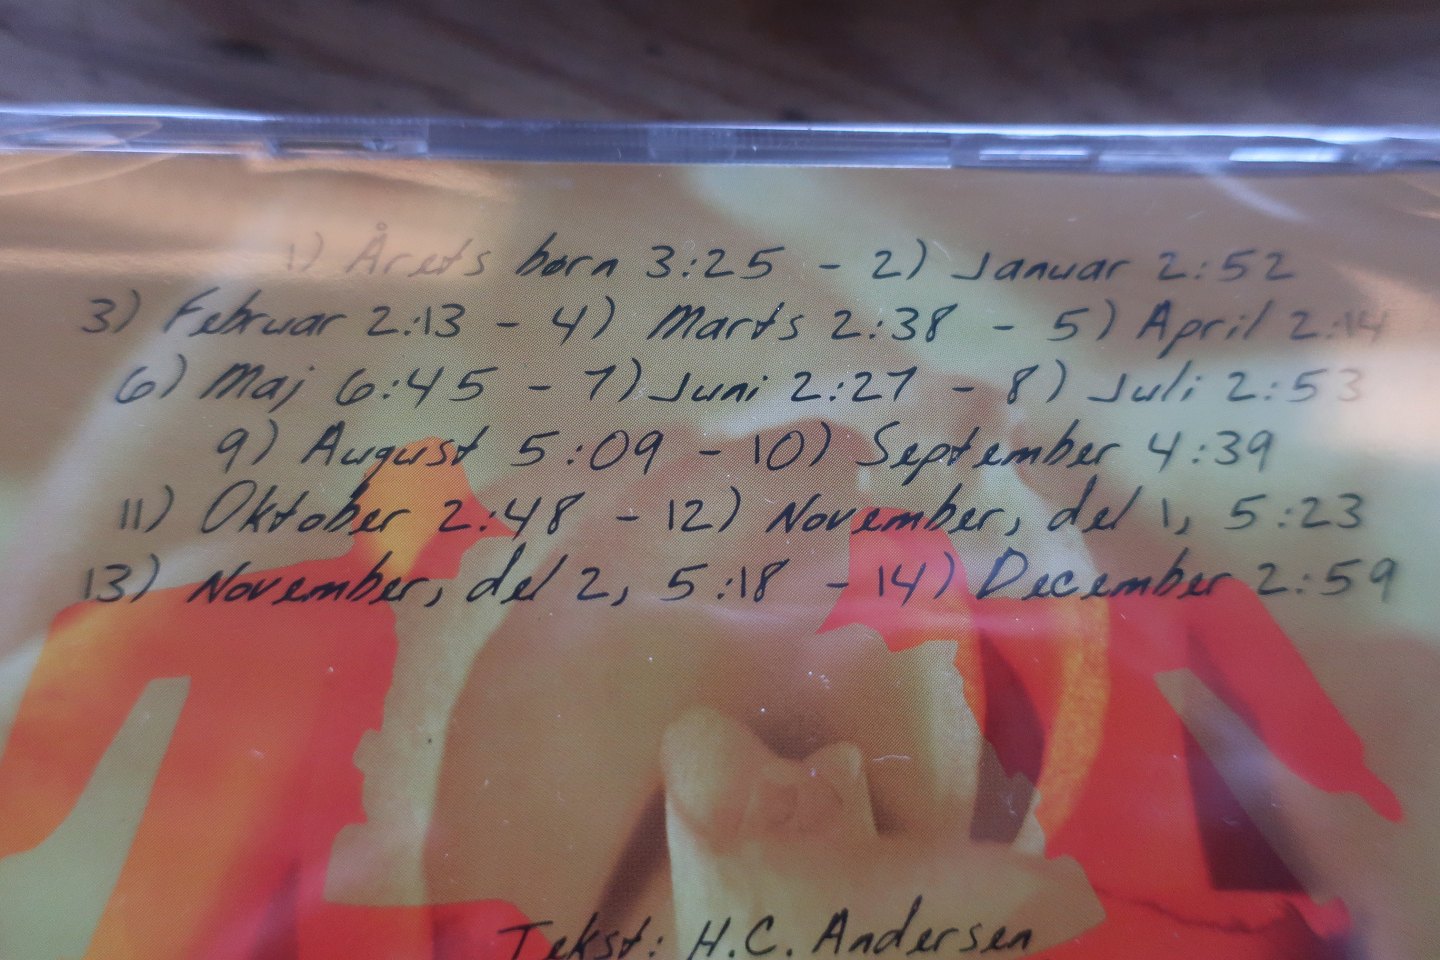 1) Årets børn 3:25 - 2) Januar 2:52
3) Februar 2:13 - 4) Marts 2:38 - 5) April 2:14
6) Maj 6:45 - 7) Juni 2:27 - 8) Juli 2:53
9) August 5:09 - 10) September 4:39
11) Oktober 2:48 - 12) November, del 1, 5:23
13) November, del 2, 5:18 - 14) December 2:59
Tekst: H.C. Andersen